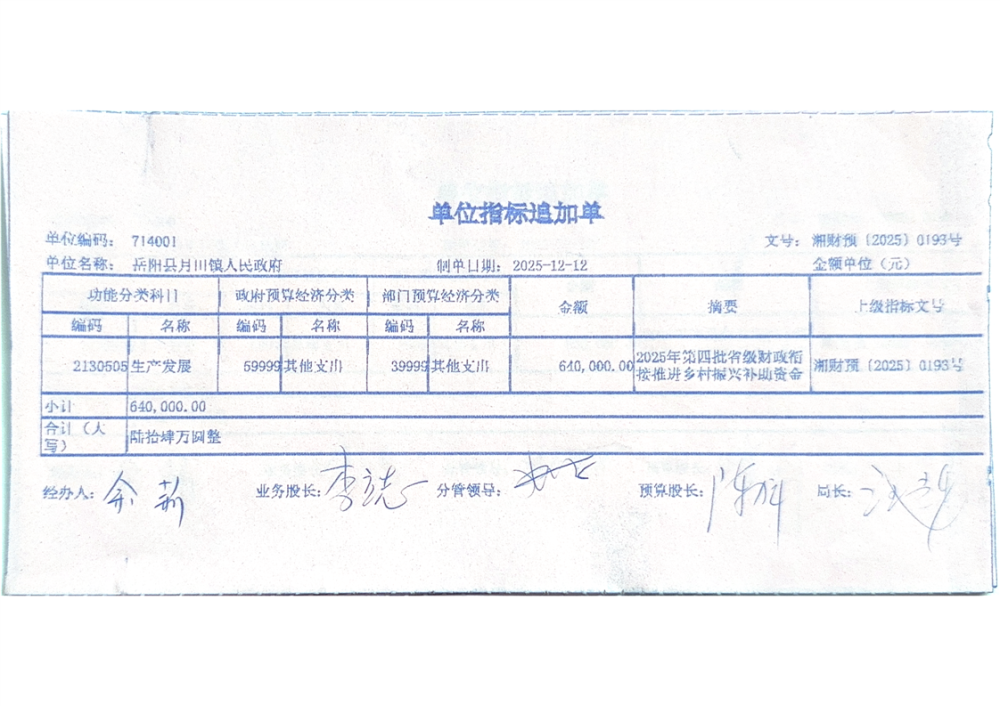 单位指标追加单
单位编码: 714001 文号: 湘财预〔2025〕0193号
单位名称: 岳阳县月田镇人民政府 制单日期: 2025-12-12 金额单位（元）
功能分类科目 政府预算经济分类 部门预算经济分类 金额 摘要 上级指标文号
编码 名称 编码 名称 编码 名称
2130505 生产发展 59999 其他支出 39999 其他支出 640,000.00 2025年第四批省级财政衔 湘财预〔2025〕0193号
接推进乡村振兴补助资金
小计 640,000.00
合计（大 陆拾肆万圆整
写）
经办人: 余莉 业务股长: 分管领导: 预算股长: 局长: